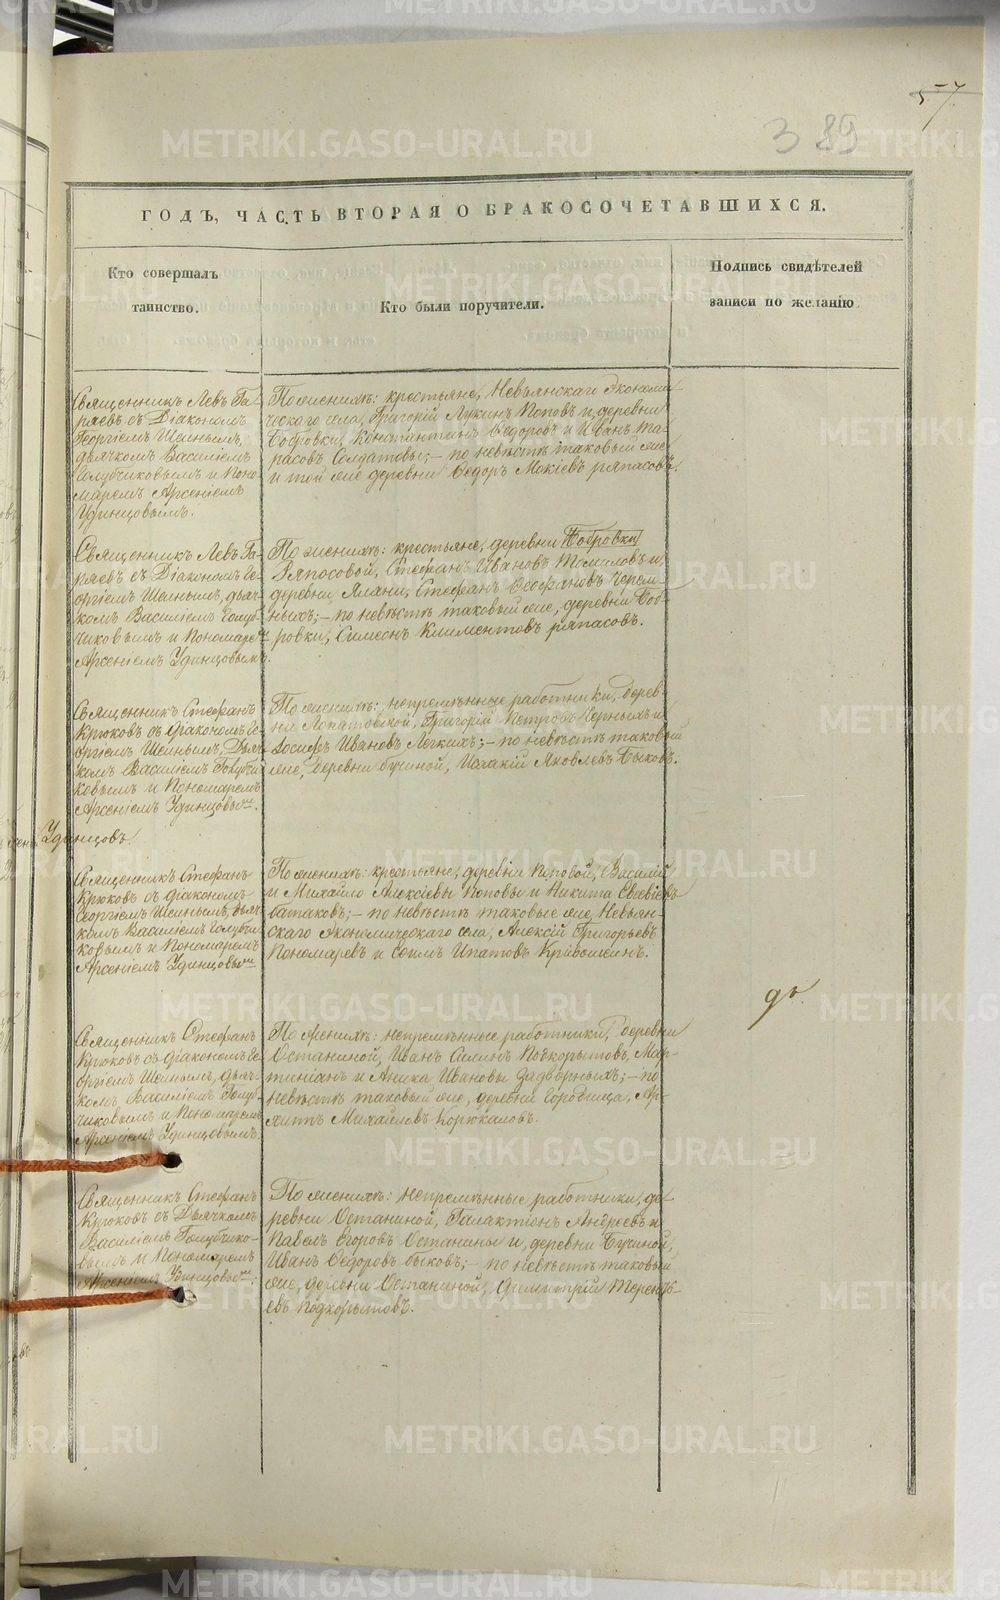 57.
3 89
ГОДЪ, ЧАСТЬ ВТОРАЯ О БРАКОСОЧЕТАВШИХСЯ.
Кто совершалъ
таинство.
Кто были поручители.
Подпись свидѣтелей
записи по желанію
Священникъ Левъ Га-
ряевъ съ Діакономъ
Георгіемъ Шеинымъ,
дьячкомъ Василіемъ
Голубчиковымъ и Поно-
маремъ Арсеніемъ
Удинцовымъ.
По женихѣ: крестьяне, Невьянскаго Экономи-
ческаго села, Григорій Лукинъ Поповъ и, деревни
Бобровки, Константинъ Ѳедоровъ и Иванъ Та-
расовъ Солдатовы; — по невѣстѣ таковый же
и той же деревни Ѳедоръ Мокіевъ Ряпасовъ.
Священникъ Левъ Га-
ряевъ съ Діакономъ Ге-
оргіемъ Шеинымъ, дьяч-
комъ Василіемъ Голуб-
чиковымъ и Пономаремъ
Арсеніемъ Удинцовымъ.
По женихѣ: крестьяне, деревни Бобровки
Ряпосовой, Стефанъ Ивановъ Томиловъ и,
деревни Ялани, Стефанъ Ѳеофановъ Черем-
ныхъ; — по невѣстѣ таковый же, деревни Боб-
ровки, Симеонъ Климентовъ Ряпасовъ.
Священникъ Стефанъ
Крюковъ съ діакономъ Ге-
оргіемъ Шеинымъ, Дьяч-
комъ Василіемъ Голубчи-
ковымъ и Пономаремъ
Арсеніемъ Удинцовым.
По женихѣ: непремѣнные работники, дерев-
ни Лопатовской, Григорій Петровъ Черныхъ и
Іосифъ Ивановъ Легкихъ; — по невѣстѣ таковый
же, деревни Бучиной, Исаакій Яковлевъ Быковъ.
Удинцовъ.
Священникъ Стефанъ
Крюковъ съ діакономъ
Георгіемъ Шеинымъ, дьяч-
комъ Василіемъ Голубчи-
ковымъ и Пономаремъ
Арсеніемъ Удинцовым
По женихѣ: крестьяне, деревни Поповой, Василій
и Михайло Алексіевы Поповы и Никита Евсевіевъ
Батаковъ; — по невѣстѣ таковые же, Невьян-
скаго Экономическаго села, Алексій Григорьевъ
Пономаревъ и Ипатовъ Кривошеинъ.
Священникъ Стефанъ
Крюковъ съ діакономъ Ге-
оргіемъ Шеинымъ, дьяч-
комъ Василіемъ Голуб-
чиковымъ и Пономаремъ
Арсеніемъ Удинцовымъ.
По женихѣ: непремѣнные работники, деревни
Останиной, Иванъ Подкорытовъ, Мар-
тиніанъ и Аника Ивановы Задворныхъ; — по
невѣстѣ таковый же, деревни Городища, Ар-
хиппъ Михайловъ Корюкаловъ.
Священникъ Стефанъ
Крюковъ съ Дьячкомъ
Василіемъ Голубчико-
вымъ и Пономаремъ
Арсеніемъ Удинцовым.
По женихѣ: непремѣнные работники, де-
ревни Останиной, Галактіонъ Андреевъ и
Павелъ Егоровъ Останины и, деревни Бучиной,
Иванъ Ѳедоровъ Быковъ; — по невѣстѣ таковый
же, деревни Останиной, Димитрій Терентъ-
евъ Подкорытовъ.
METRIKI.GASO-URAL.RU